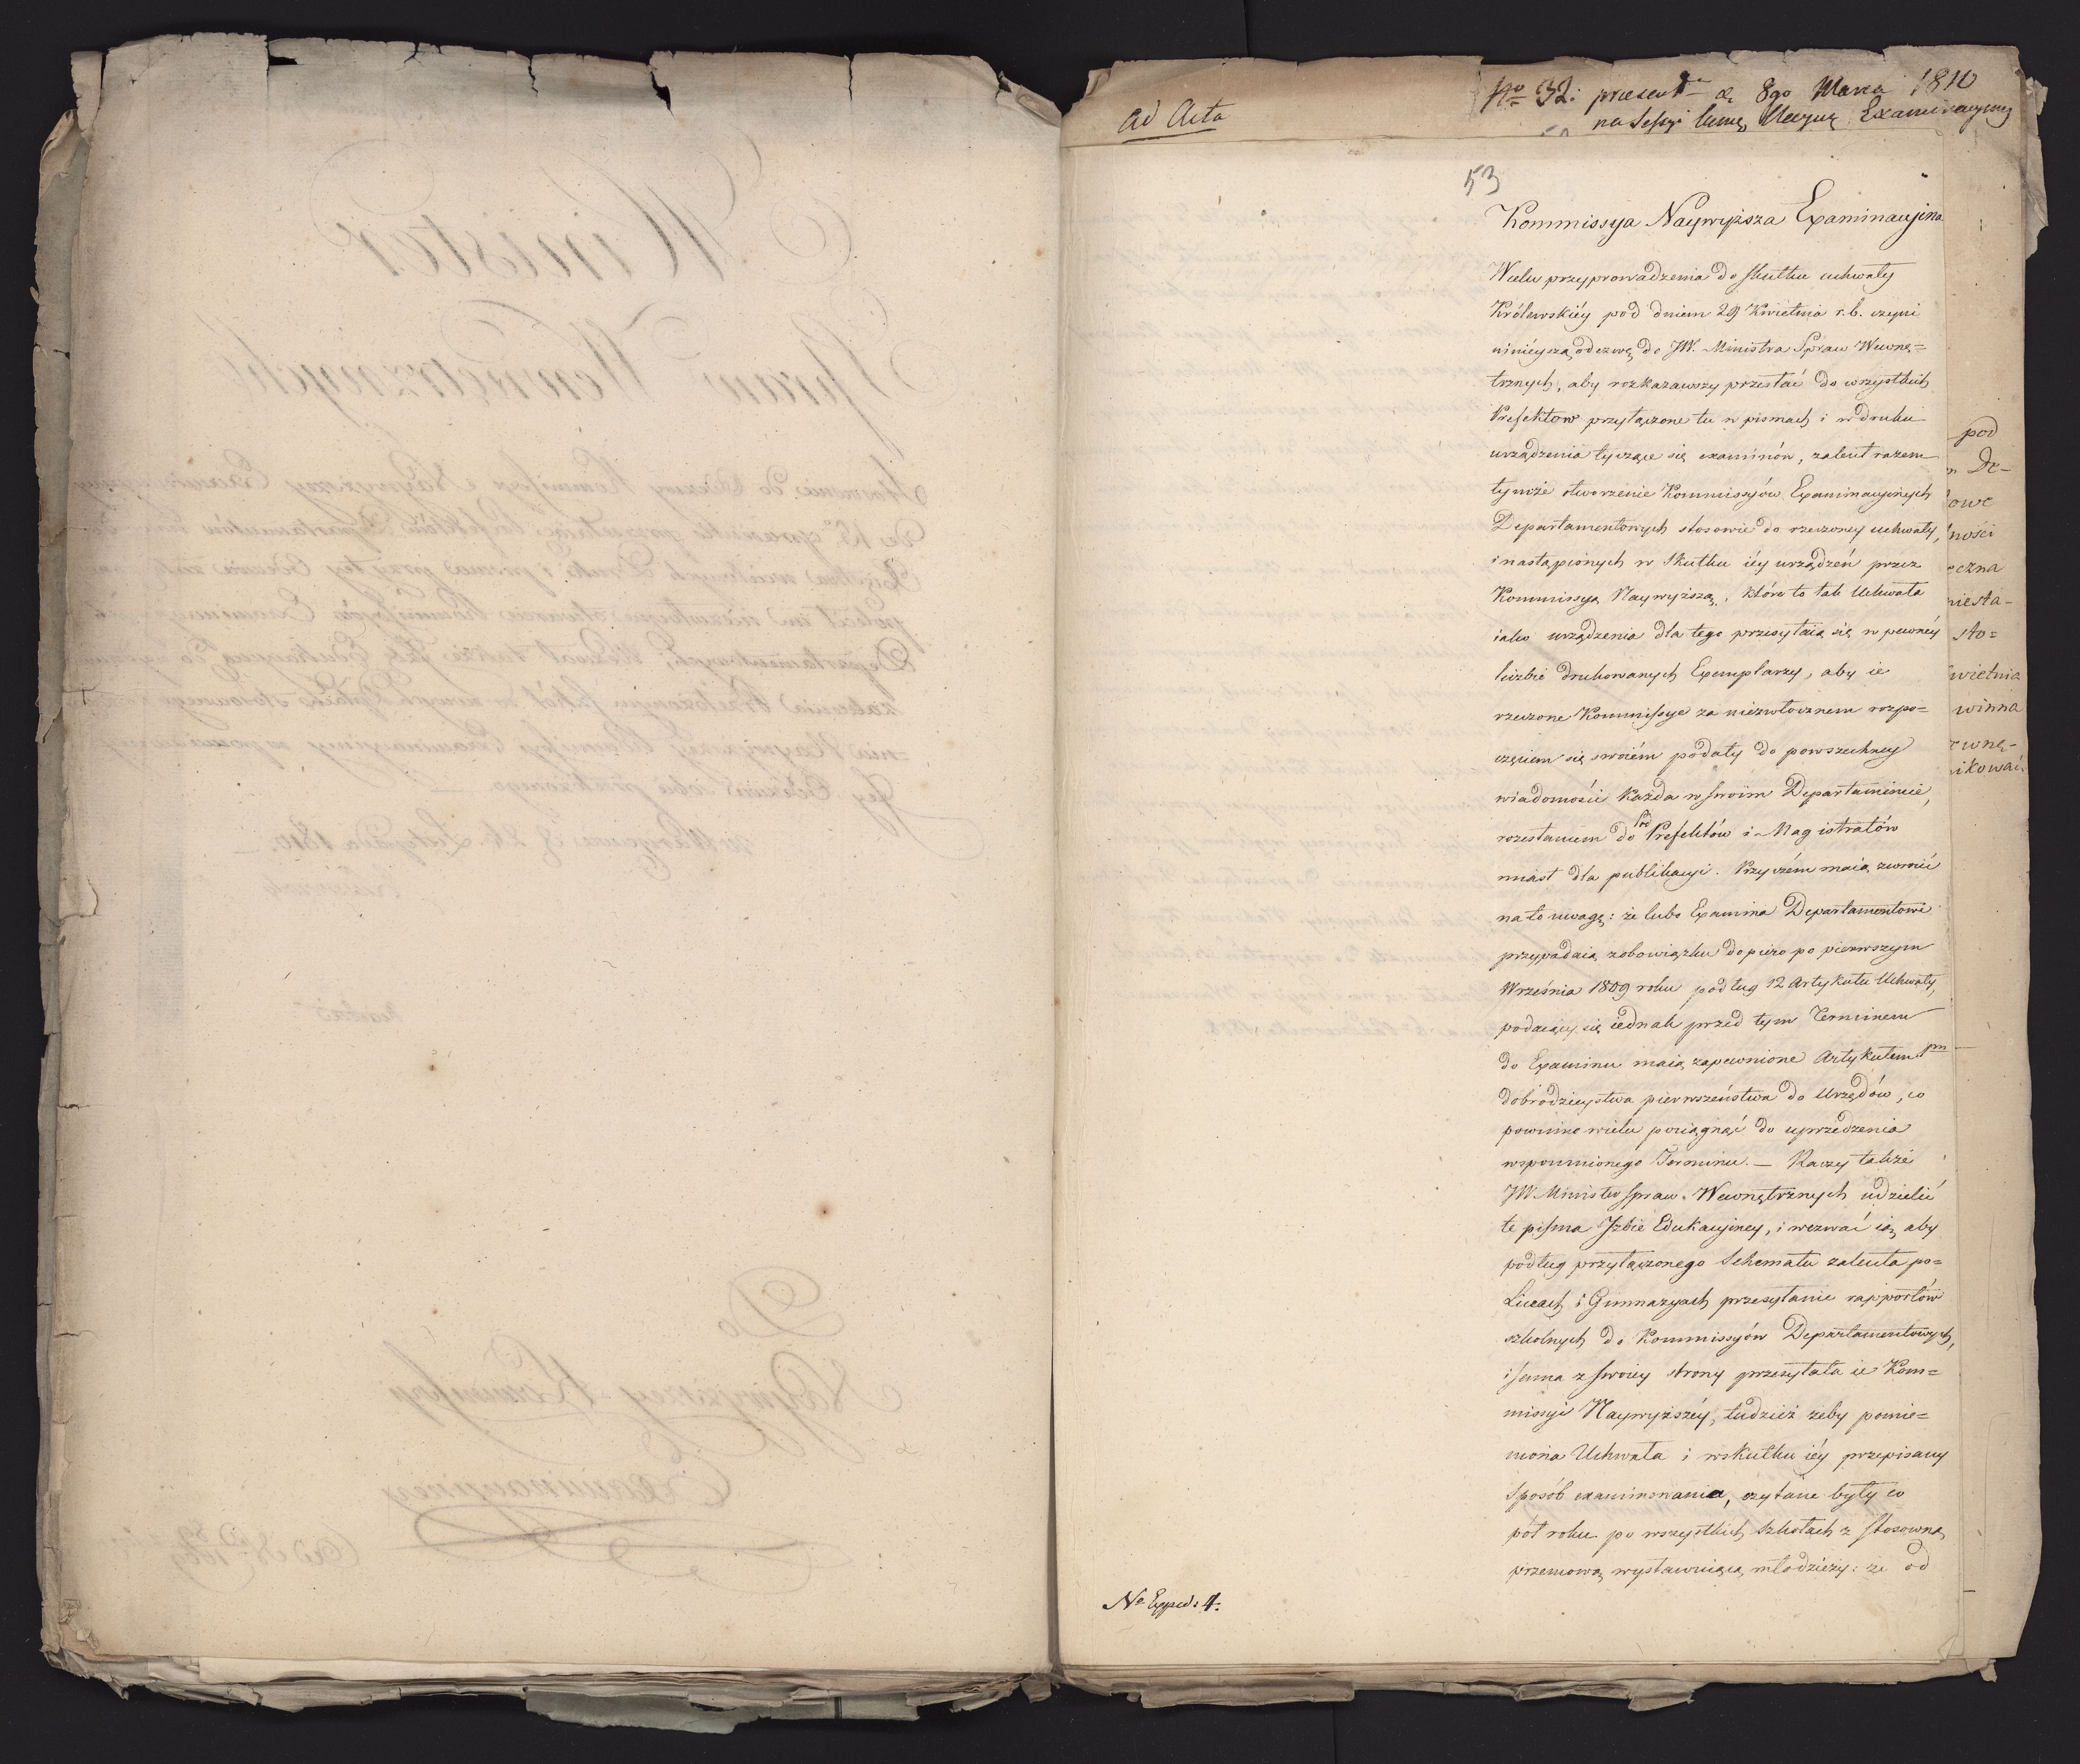 ad Acta
No 32: praesent d. 8go Marca 1810
na Sessyi Examinacyiney
53
Kommissya Naywyższa Examinacyina
Wcelu przyprowadzenia do skutku uchwały
Królewskiéy pod dniem 29 Kwietnia r. b. czyni
ninieyszą odezwę do JW. Ministra Spraw Wewnę=
trznych, aby rozkazawszy przesłać do wszystkich
Prefektow przyłączone tu w pismach i w druku
urządzenia tyczące się examinów, zalecił razem
tymże otworzenie Kommissyów Examinacyinych
Departamentowych stosownie do rzeczoney uchwały,
i nastąpionych w skutku iéy urządzeń przez
Kommissyą Naywyższą, które to tak Uchwała
iako urządzenia dla tego przesyłaią się w pewnéy
liczbie drukowanych Exemplarzy, aby ie
rzeczone Kommissye za niezwłocznem rozpo=
częciem się swoiém podały do powszechney
wiadomości każda w swoim Departamencie,
rozesłaniem do Pod Prefektów i Magistratów
miast dla publikacyi. Przyczém maią zwrócić
na to uwagę: że lubo Examina Departamentowe
przypadaią z obowiązku dopiero po pierwszym
Września 1809 roku podług 12 Artykułu Uchwały,
podaiący się iednak przed tym Terminem
do Examinu maią zapewnione Artykułem 1ym
dobrodzieystwa pierwszeństwa do Urzędów, co
powinno wielu pociągnąć do uprzedzenia
wspomnionego Terminu. — Raczy także
JW Minister Spraw Wewnętrznych udzielić
te pisma Izbie Edukacyiney, i wezwać ią, aby
podług przyłączonego Schematu zaleciła po
Liceach i Gimnazyach przesyłanie rapportów
szkolnych do Kommissyów Departamentowych,
i sama z swoiey strony przesyłała ie Kom=
missyi Naywyższéy, tudzież żeby pomie=
niona Uchwała i w skutku iéy przepisany
Sposób examinowania, czytane były co
pół roku po wszystkich Szkołach z stosowną
przemową wystawuiącą młodzieży: że od
No Exped: 4.
pod
De-
owe
ności
eczna
niesta-
sto=
wietnia
winna
wnę-
ikować